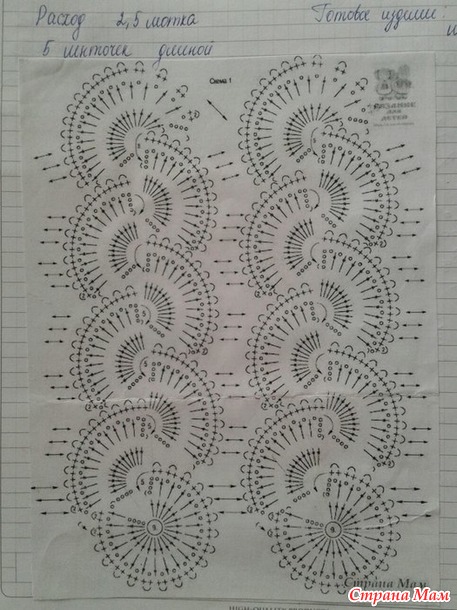 Расход 2,5 мотка
Готовое изделие:
5 ниточек длиной
Схема 1
ВЯЗАНИЕ
ДЛЯ
ДЕТЕЙ
Страна Мам
Страна Мам